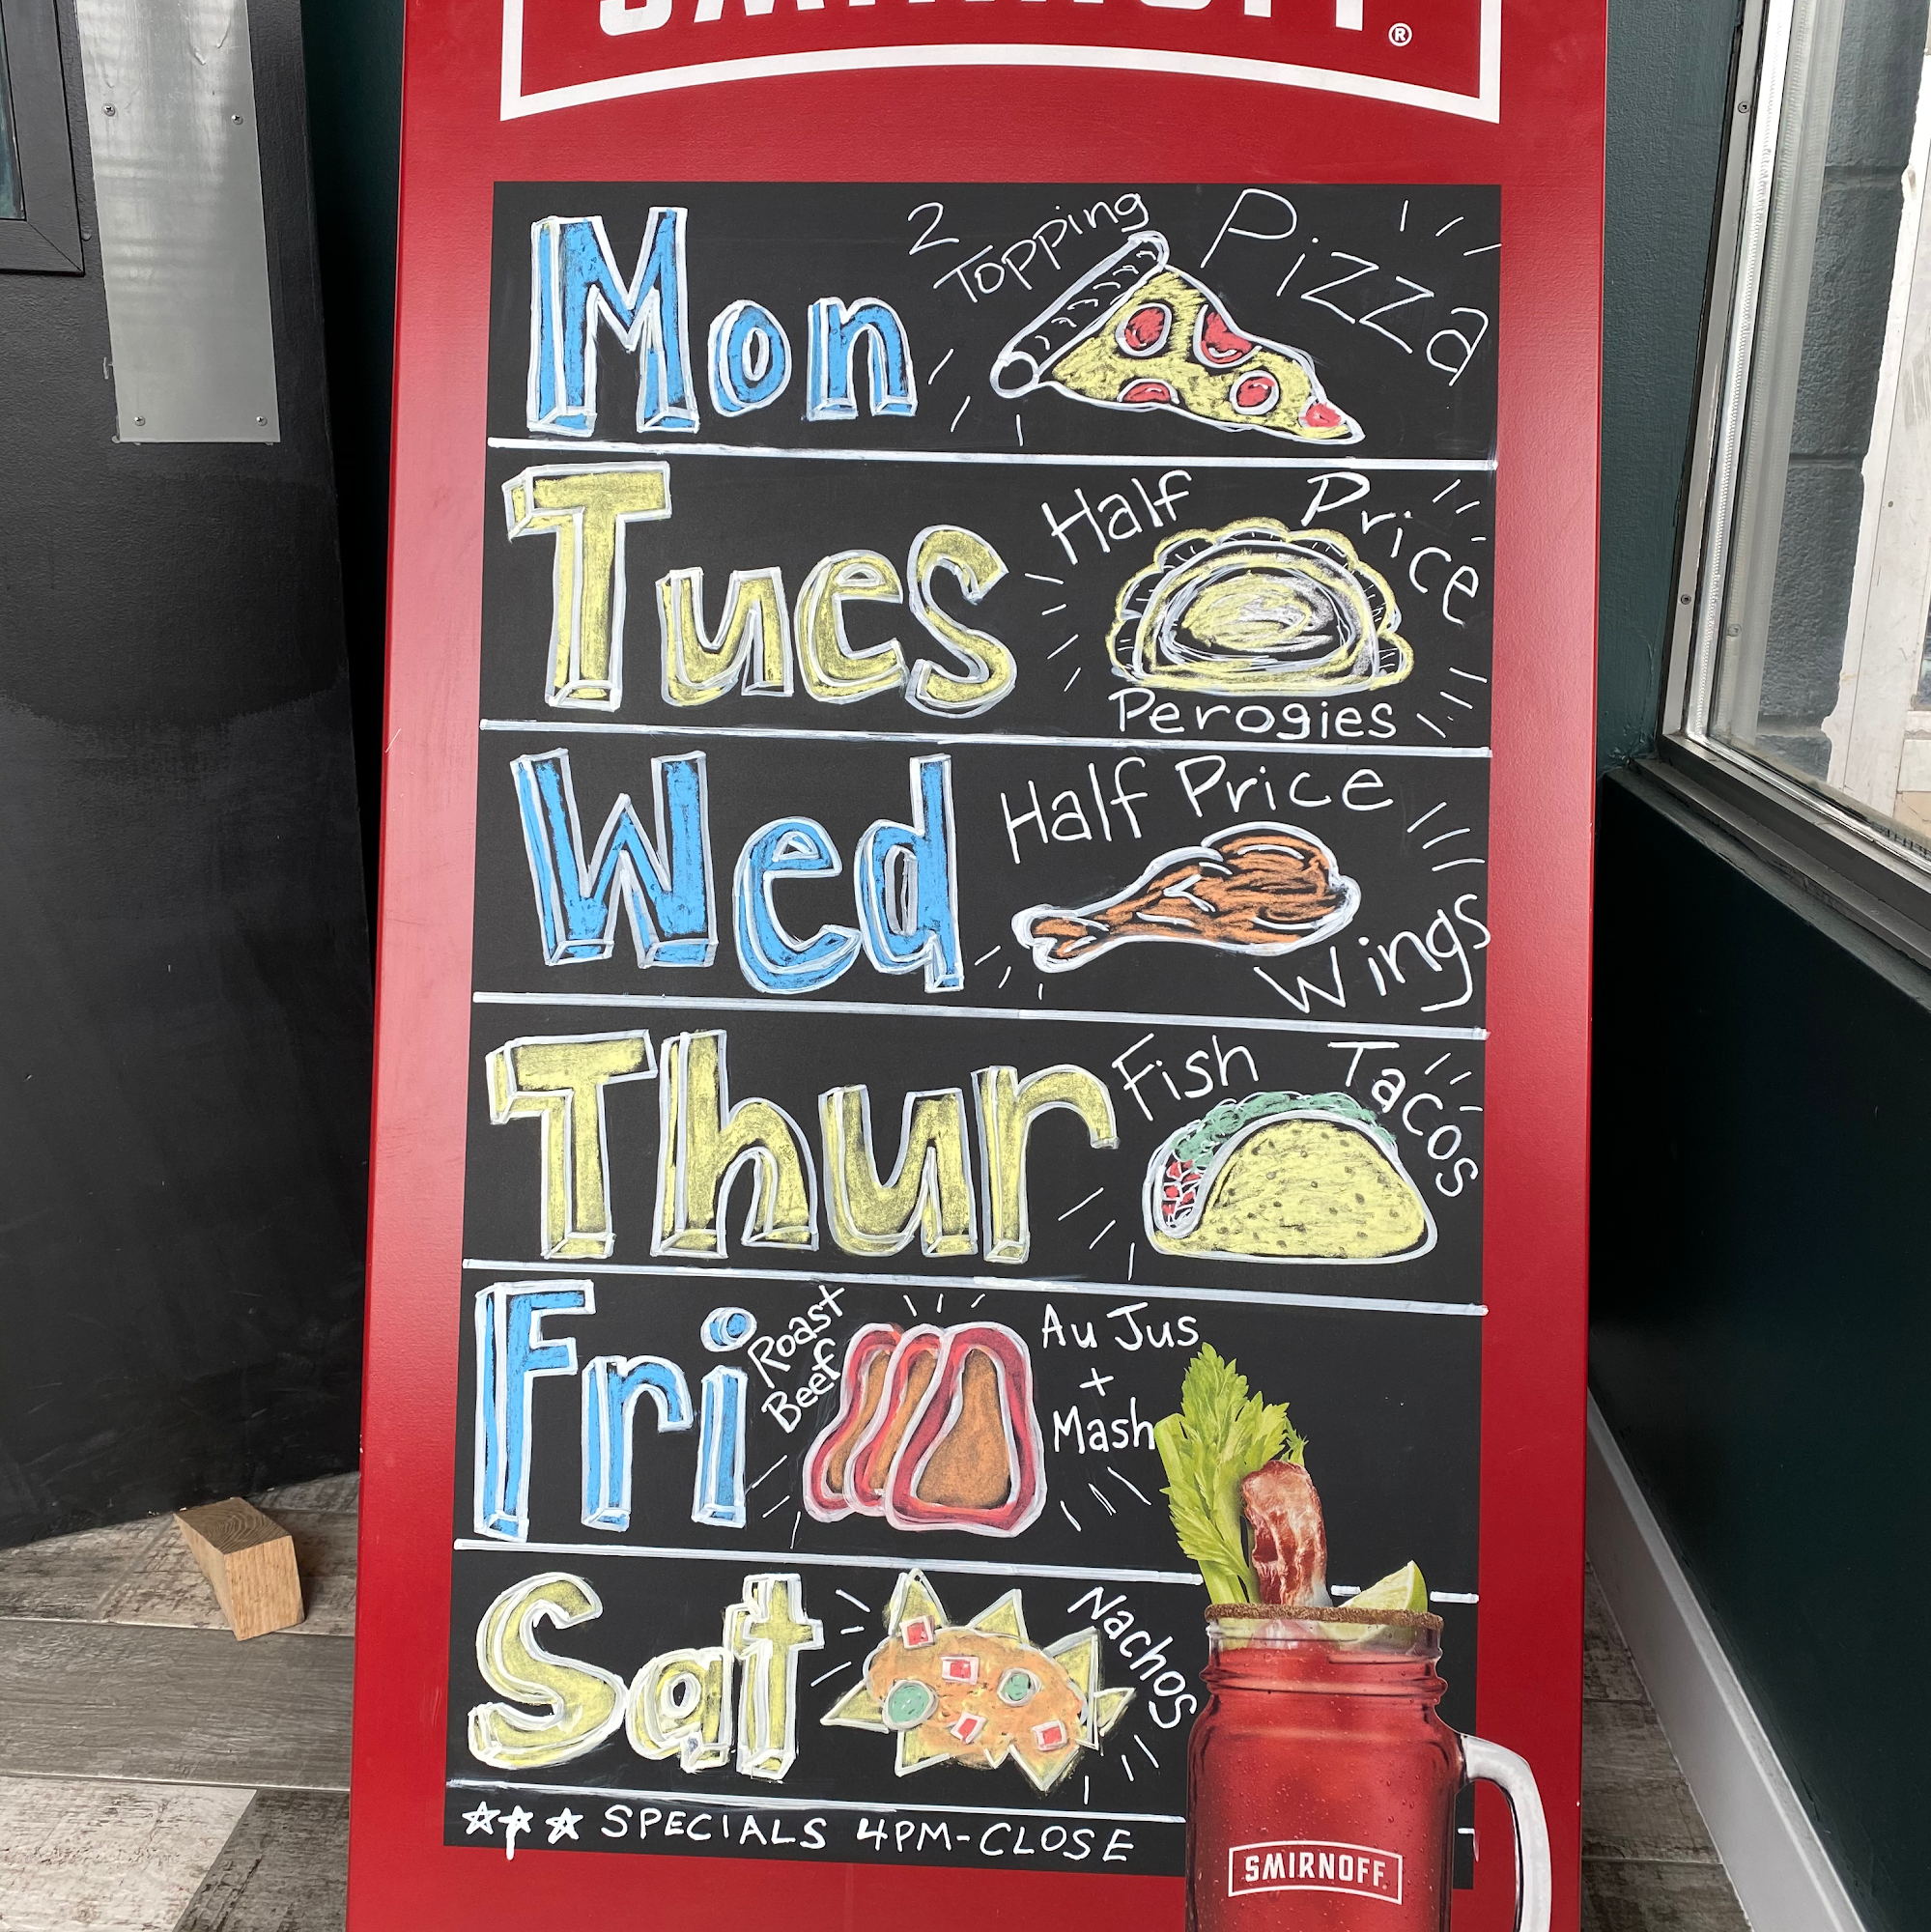 SMIRNOFF®
Mon
2 Topping Pizza
Tues
Half Price
Perogies
Wed
Half Price
Wings
Thur
Fish Tacos
Fri
Roast
Beef
Au Jus
+
Mash
Sat
Nachos
SPECIALS 4PM-CLOSE
SMIRNOFF